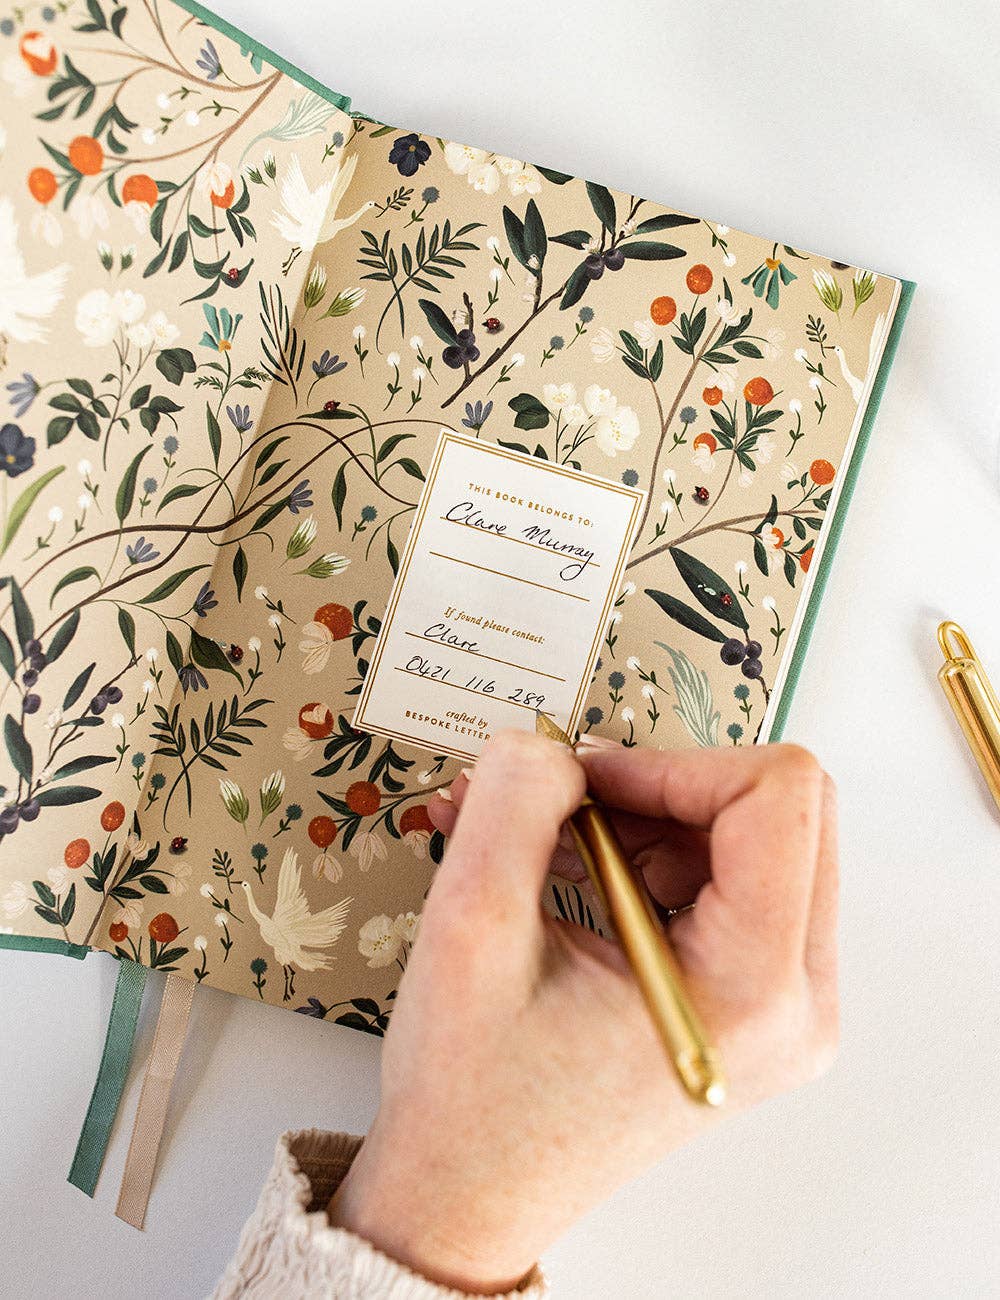 THIS BOOK BELONGS TO:
Clare Murray
If found please contact:
Clare
0421 116 289
crafted by
BESPOKE LETTER